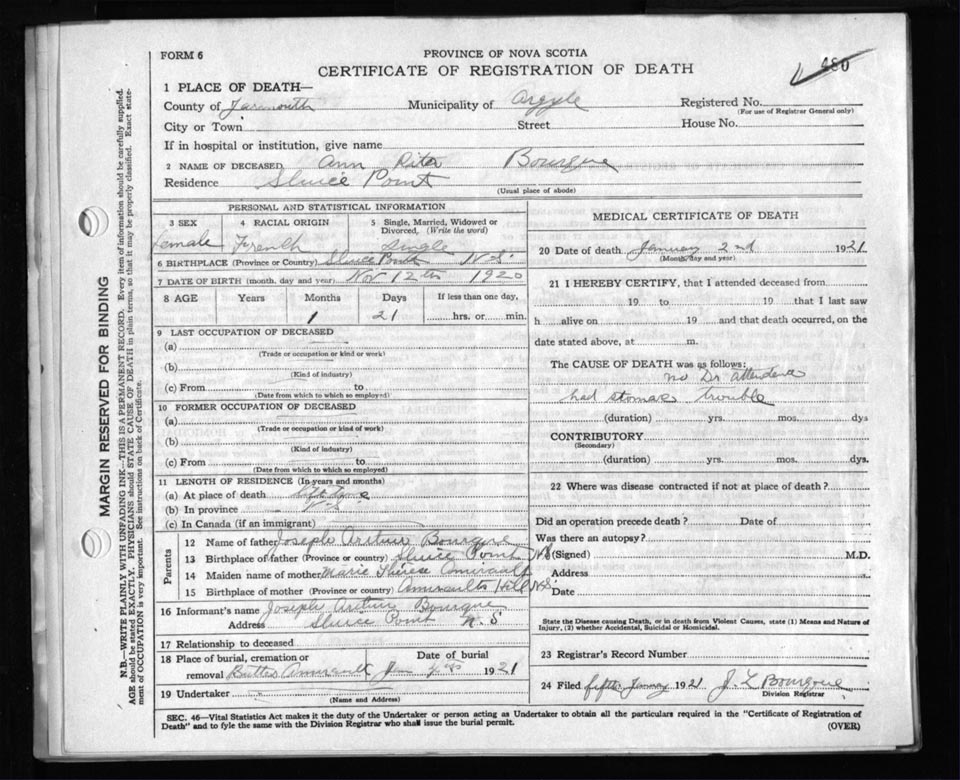 FORM 6
PROVINCE OF NOVA SCOTIA
480
CERTIFICATE OF REGISTRATION OF DEATH
1 PLACE OF DEATH—
County of Yarmouth Municipality of Argyle Registered No.
(For use of Registrar General only)
City or Town Street House No.
If in hospital or institution, give name
2 NAME OF DECEASED Ann Rita Bourque
Residence Sluice Point
(Usual place of abode)
PERSONAL AND STATISTICAL INFORMATION
3 SEX 4 RACIAL ORIGIN 5 Single, Married, Widowed or Divorced, (Write the word)
Female French Single
6 BIRTHPLACE (Province or Country) Sluice Point N.S.
7 DATE OF BIRTH (month, day and year) Nov 12th 1920
8 AGE Years Months Days If less than one day,
1 21 hrs. or min.
9 LAST OCCUPATION OF DECEASED
(a)
(Trade or occupation or kind or work)
(b)
(Kind of industry)
(c) From to
(Date from which to which so employed)
10 FORMER OCCUPATION OF DECEASED
(a)
(Trade or occupation or kind of work)
(b)
(Kind of industry)
(c) From to
(Date from which to which so employed)
11 LENGTH OF RESIDENCE (In years and months)
(a) At place of death
(b) In province N-S
(c) In Canada (if an immigrant)
Parents
12 Name of father Joseph Arthur Bourque
13 Birthplace of father (Province or country) Sluice Point N.S
14 Maiden name of mother Marie Therese Amirault
15 Birthplace of mother (Province or country) Amiraults Hill N.S.
16 Informant's name Joseph Arthur Bourque
Address Sluice Point N.S
17 Relationship to deceased
18 Place of burial, cremation or Date of burial
removal Buttes Amirault Jan 1921
19 Undertaker
(Name and Address)
MEDICAL CERTIFICATE OF DEATH
20 Date of death January 2nd 1921
(Month, day and year)
21 I HEREBY CERTIFY, that I attended deceased from
19 to 19 that I last saw
h alive on 19 and that death occurred, on the
date stated above, at m.
The CAUSE OF DEATH was as follows:
no Dr attendence
had stomak trouble
(duration) yrs. mos. dys
CONTRIBUTORY
(Secondary)
(duration) yrs. mos. dys.
22 Where was disease contracted if not at place of death?
Did an operation precede death? Date of
Was there an autopsy?
(Signed) M.D.
Address
Date
State the Disease causing Death, or in death from Violent Causes, state (1) Means and Nature of
Injury, (2) whether Accidental, Suicidal or Homicidal.
23 Registrar's Record Number
24 Filed fifth January 1921 J. L Bourque
Division Registrar
SEC. 46—Vital Statistics Act makes it the duty of the Undertaker or person acting as Undertaker to obtain all the particulars required in the "Certificate of Registration of
Death" and to fyle the same with the Division Registrar who shall issue the burial permit.
(OVER)
MARGIN RESERVED FOR BINDING
N.B.—WRITE PLAINLY WITH UNFADING INK—THIS IS A PERMANENT RECORD. Every item of information should be carefully supplied.
AGE should be stated EXACTLY. PHYSICIANS should STATE CAUSE OF DEATH in plain terms, so that it may be properly classified. Exact state-
ment of OCCUPATION is very important. See instructions on back of Certificate.